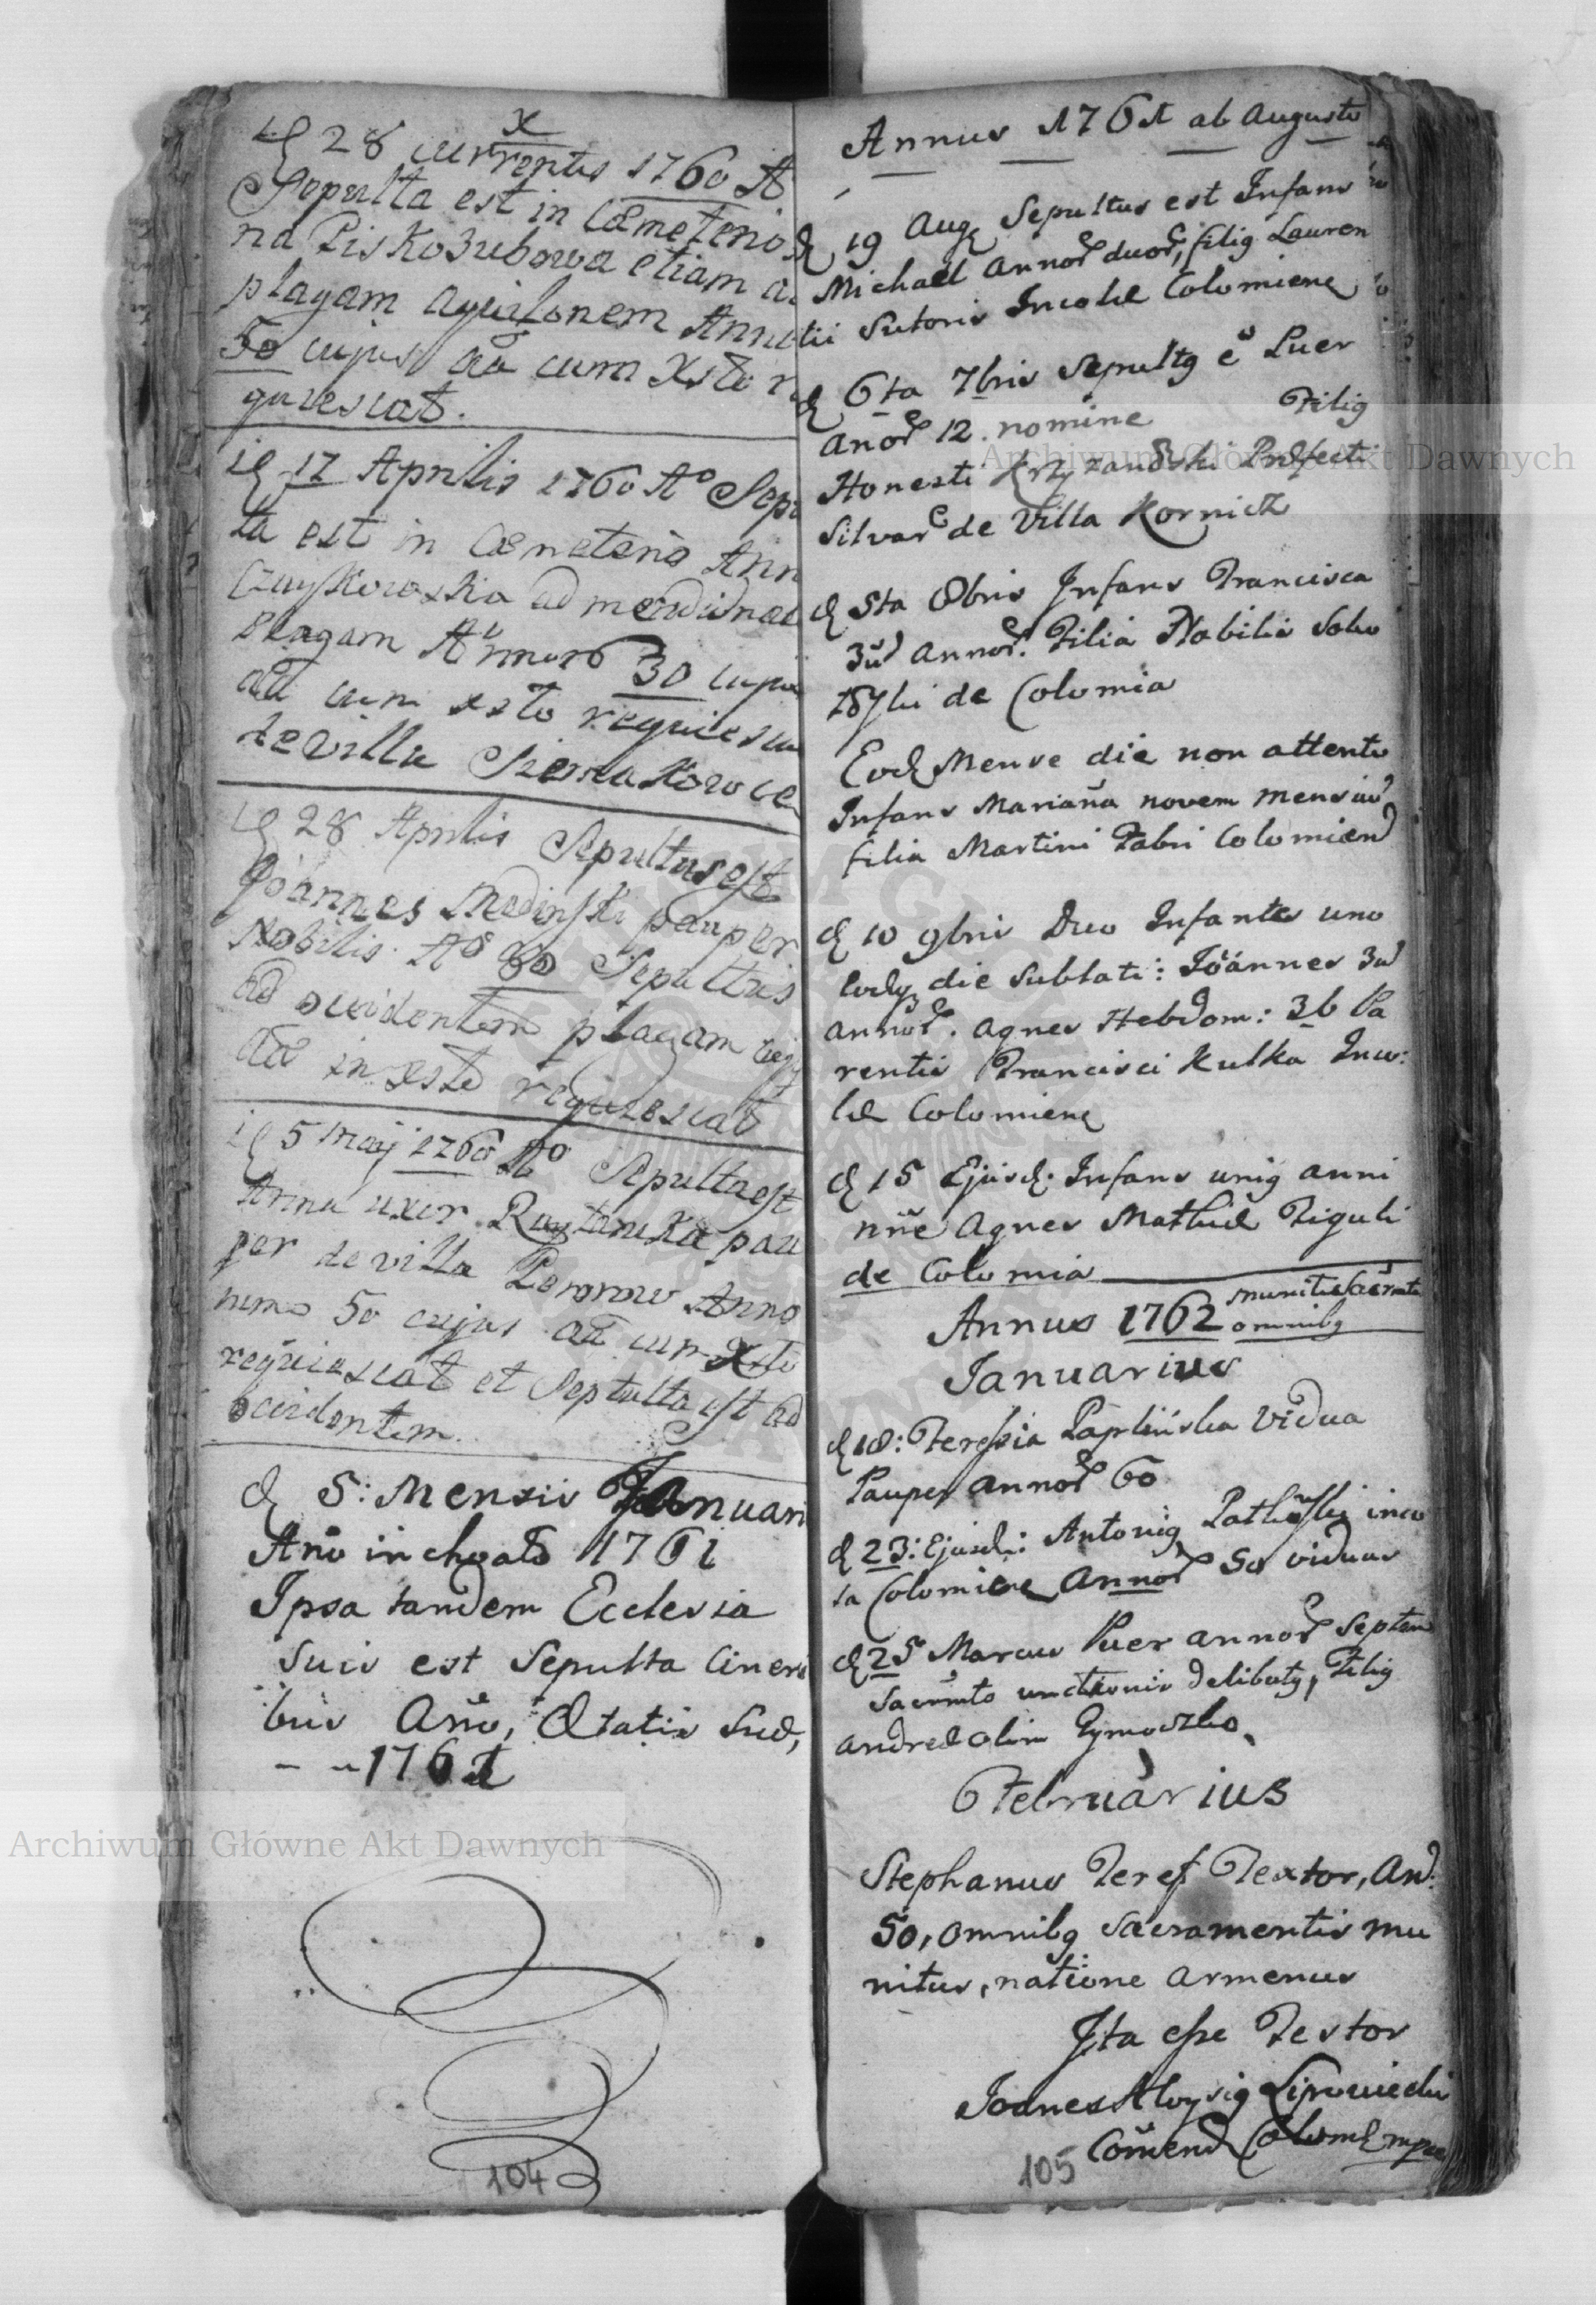 x
28 currentis 1760 A
Sepulta est in Cæmeterio
na Piskozubowa etiam a
plagam aquilonem Anno
50 cujus aīa cum Xsto re
quiescat.
17 Aprilis 1760 Aº Sepu
ta est in Cæmeterio Ann
Czaykowska ad meridional
plagam 30 cujus
aīa cum xsto requiesca
de villa
28 Aprilis Sepultus est
Joannes Medinski pauper
Nobilis Sepultus
ad occidentem plagam
aīa in xsto requiescat
5 Maij 1760 Aº Sepulta est
Anna uxor pau
per de villa Anno
50 cujus aīa cum Xsto
requiescat et Sepulta est ad
occidentem.
d 5: Mensis Januari
Año inchoato 1761
Ipsa tandem Ecclesia
suis est sepulta Cineri
bus Año, Ætatis suæ,
- - 1761
104
Annus 1761 ab Augusto
d 19 Aug Sepultus est Infans
Michael Annor duor, filig Lauren
tii Sutoris Incolæ Colomiens
d 6ta 7bris Sepultg ē Puer
anor 12. nomine Filig
Honesti Krzyzanoski Præfecti
Silvar de Villa Kornicz
d 5ta 8bris Infans Francisca
3ū annor. Filia Nobilis
de Colomia
Eod Mense die non attento
Infans Mariaña novem mensiū
filia Martini Fabri Colomien
d 10 9bris Duo Infantes uno
eodg die sublati: Joannes 3ū
annor. Agnes Hebdom: 36 Pa
rentis Francisci Kulka Inco:
læ Colomiens
d 15 Ejusd. Infans unig anni
nñe Agnes Mathiæ Figuli
de Colomia
Annus 1762 muniti Sacrmtis
omnibg
Januarius
d 18: Teressia Vidua
Pauper annor 60
d 23: Ejusd: Antonig inco
la Colomiens Annor 50 viduus
d 25 Marcus Puer annor Septem
Sacrmto unctionis delibatg, Filig
Andreæ olim
Februarius
Stephanus Teres Textor, An:
50, omnibg Sacramentis mu
nitus, natione Armenus
Ita esse Testor
Joanes Aloysig Lipowiecki
Comend Colom mpa
105
Archiwum Główne Akt Dawnych
Archiwum Główne Akt Dawnych